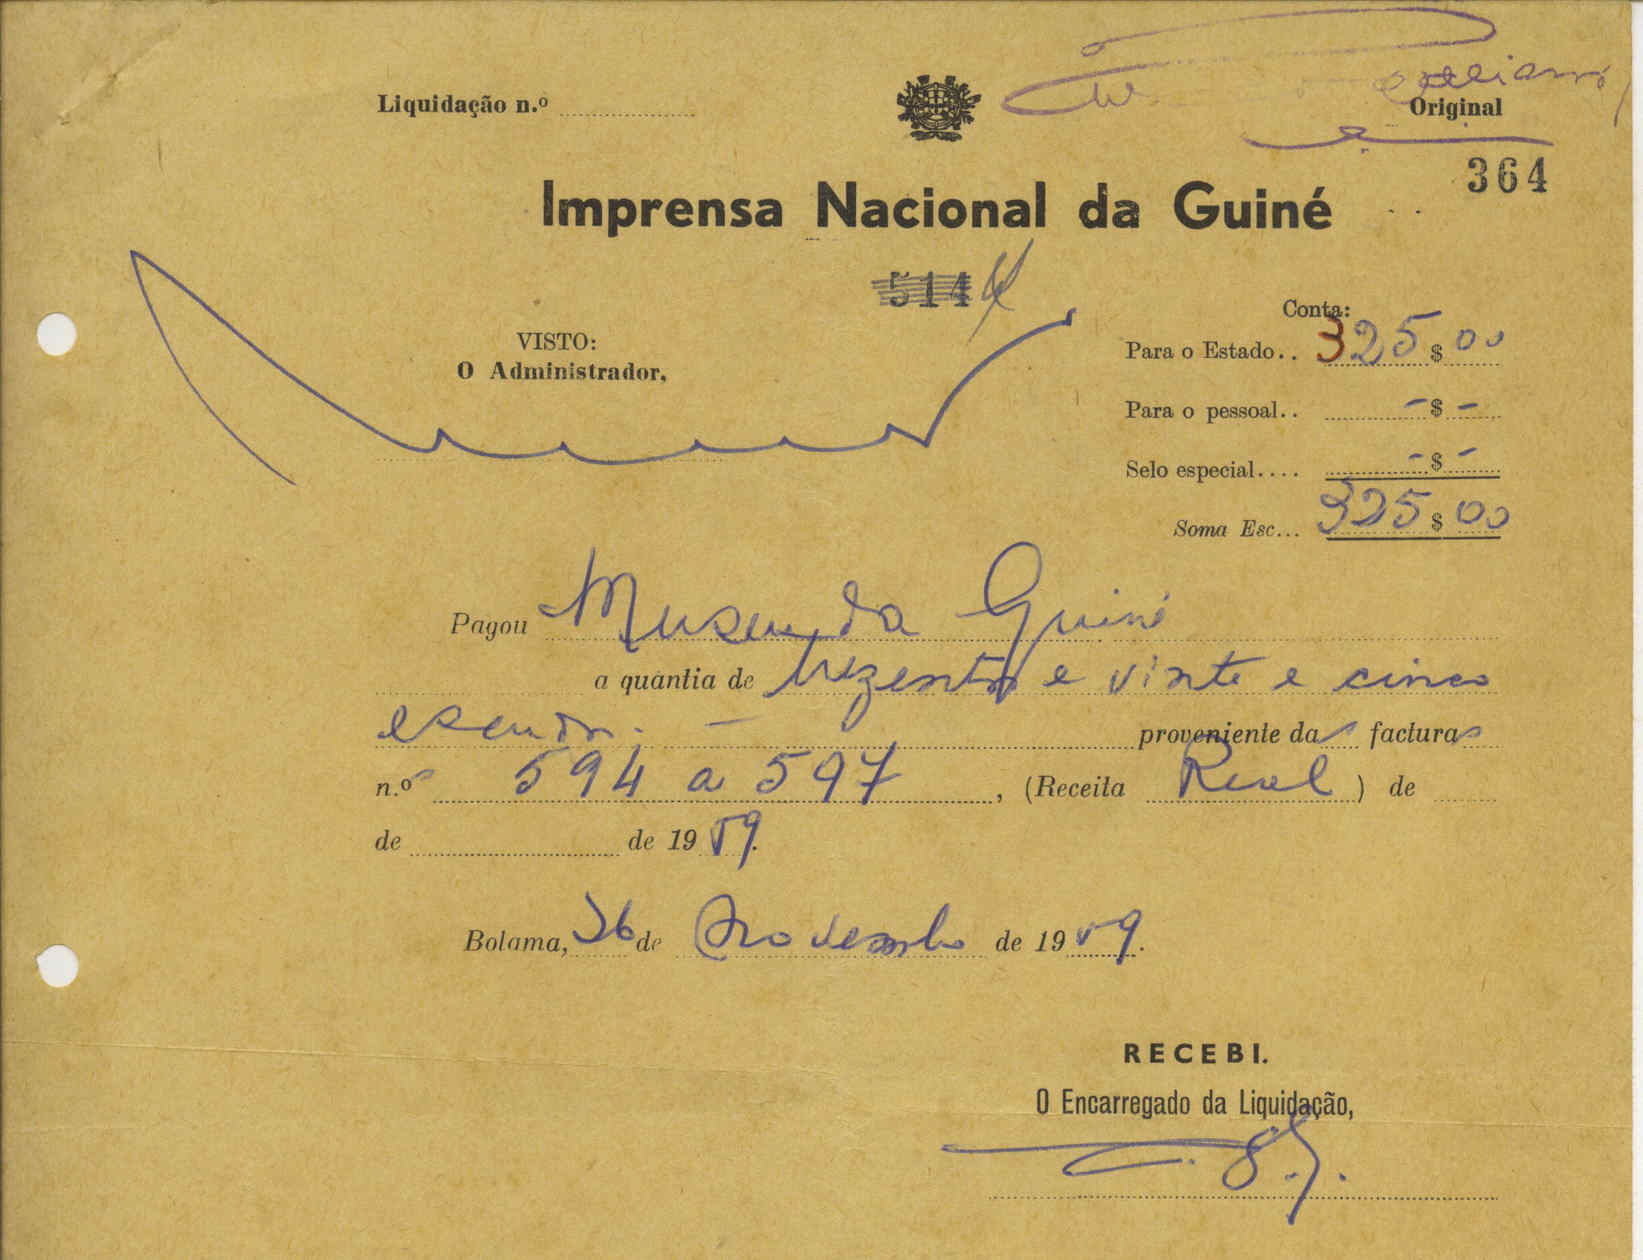 Liquidação n.º
Original
364
Imprensa Nacional da Guiné
514
VISTO:
O Administrador,
Conta:
Para o Estado.. 325$00
Para o pessoal.. -$-
Selo especial.... -$-
Soma Esc... 325$00
Pagou Museu da Guiné
a quantia de trezentos e vinte e cinco
escudos. — proveniente das facturas
n.ºs 594 a 597, (Receita Real) de
de de 1959.
Bolama, 26 de Novembro de 1959.
RECEBI.
O Encarregado da Liquidação,